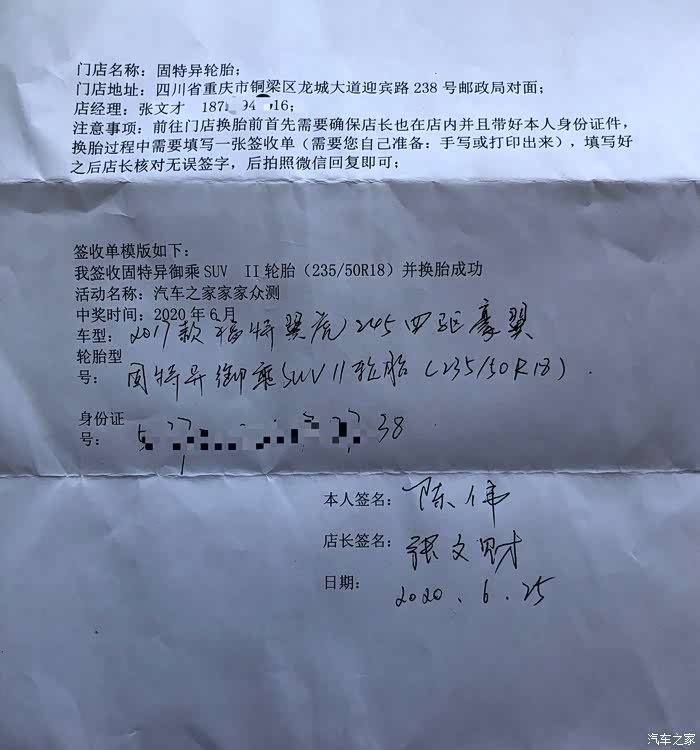 门店名称：固特异轮胎；
门店地址：四川省重庆市铜梁区龙城大道迎宾路 238 号邮政局对面；
店经理：张文才 187 94 16；
注意事项：前往门店换胎前首先需要确保店长也在店内并且带好本人身份证件，
换胎过程中需要填写一张签收单（需要您自己准备：手写或打印出来），填写好
之后店长核对无误签字，后拍照微信回复即可；
签收单模版如下：
我签收固特异御乘 SUV II 轮胎（235/50R18）并换胎成功
活动名称：汽车之家家家众测
中奖时间：2020 年 6 月
车型：2017款福特翼虎245四驱豪翼
轮胎型
号：固特异御乘SUV II轮胎（235/50R18）.
身份证
号：5 38
本人签名：陈伟
店长签名：张文财
日期：2020.6.25
汽车之家